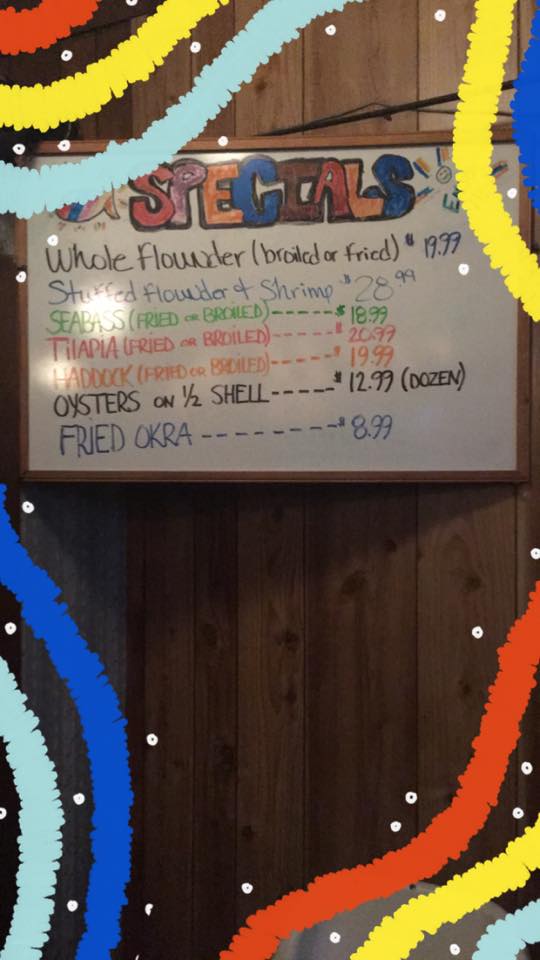 SPECIALS
Whole Flounder (broiled or fried) $ 19.99
Stuffed flounder & Shrimp $ 28.99
SEABASS (FRIED OR BROILED)-----$ 18.99
TILAPIA (FRIED OR BROILED)-----$ 20.99
HADDOCK (FRIED OR BROILED)-----$ 19.99
OYSTERS ON 1/2 SHELL-----$ 12.99 (DOZEN)
FRIED OKRA --------$ 8.99